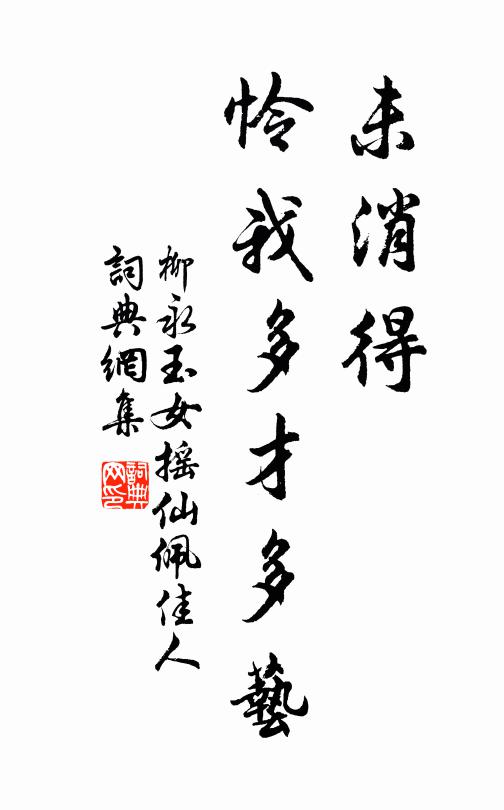 未消得
怜我多才多藝
柳永玉女摇仙佩佳人
詞典網集
詞典網印